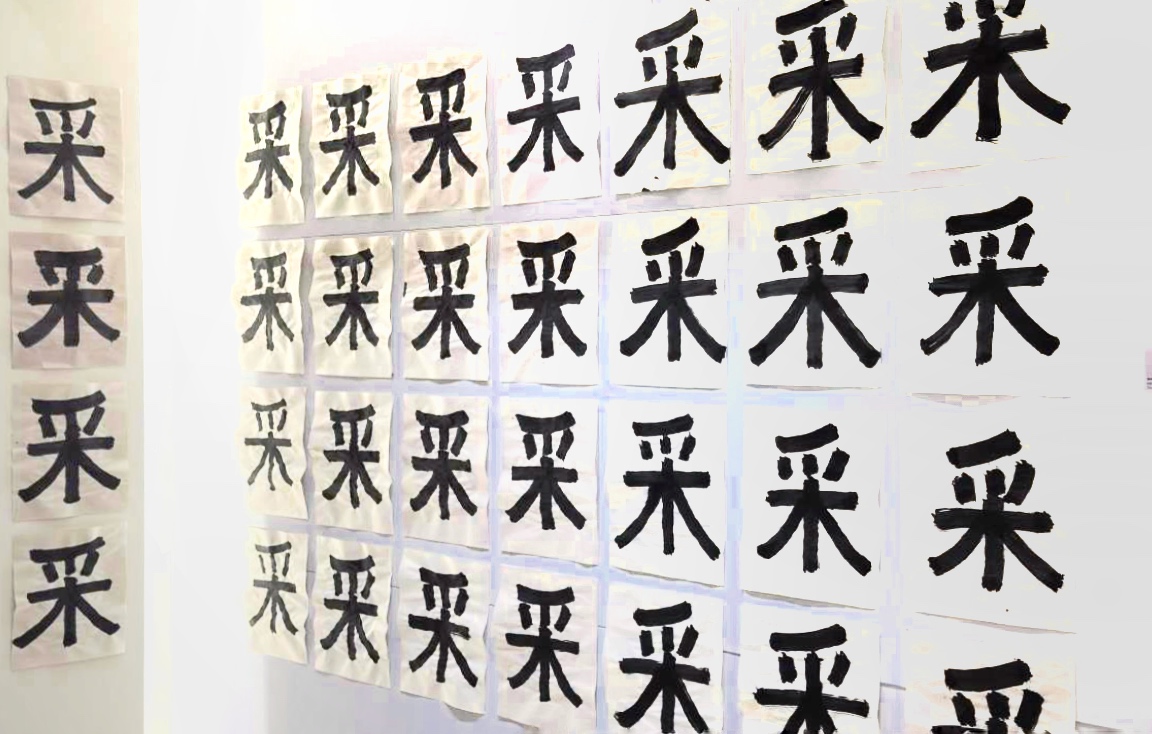 采 采 采 采 采 采 采 采
采 采 采 采 采 采 采 采
采 采 采 采 采 采 采 采
采 采 采 采 采 采 采 采